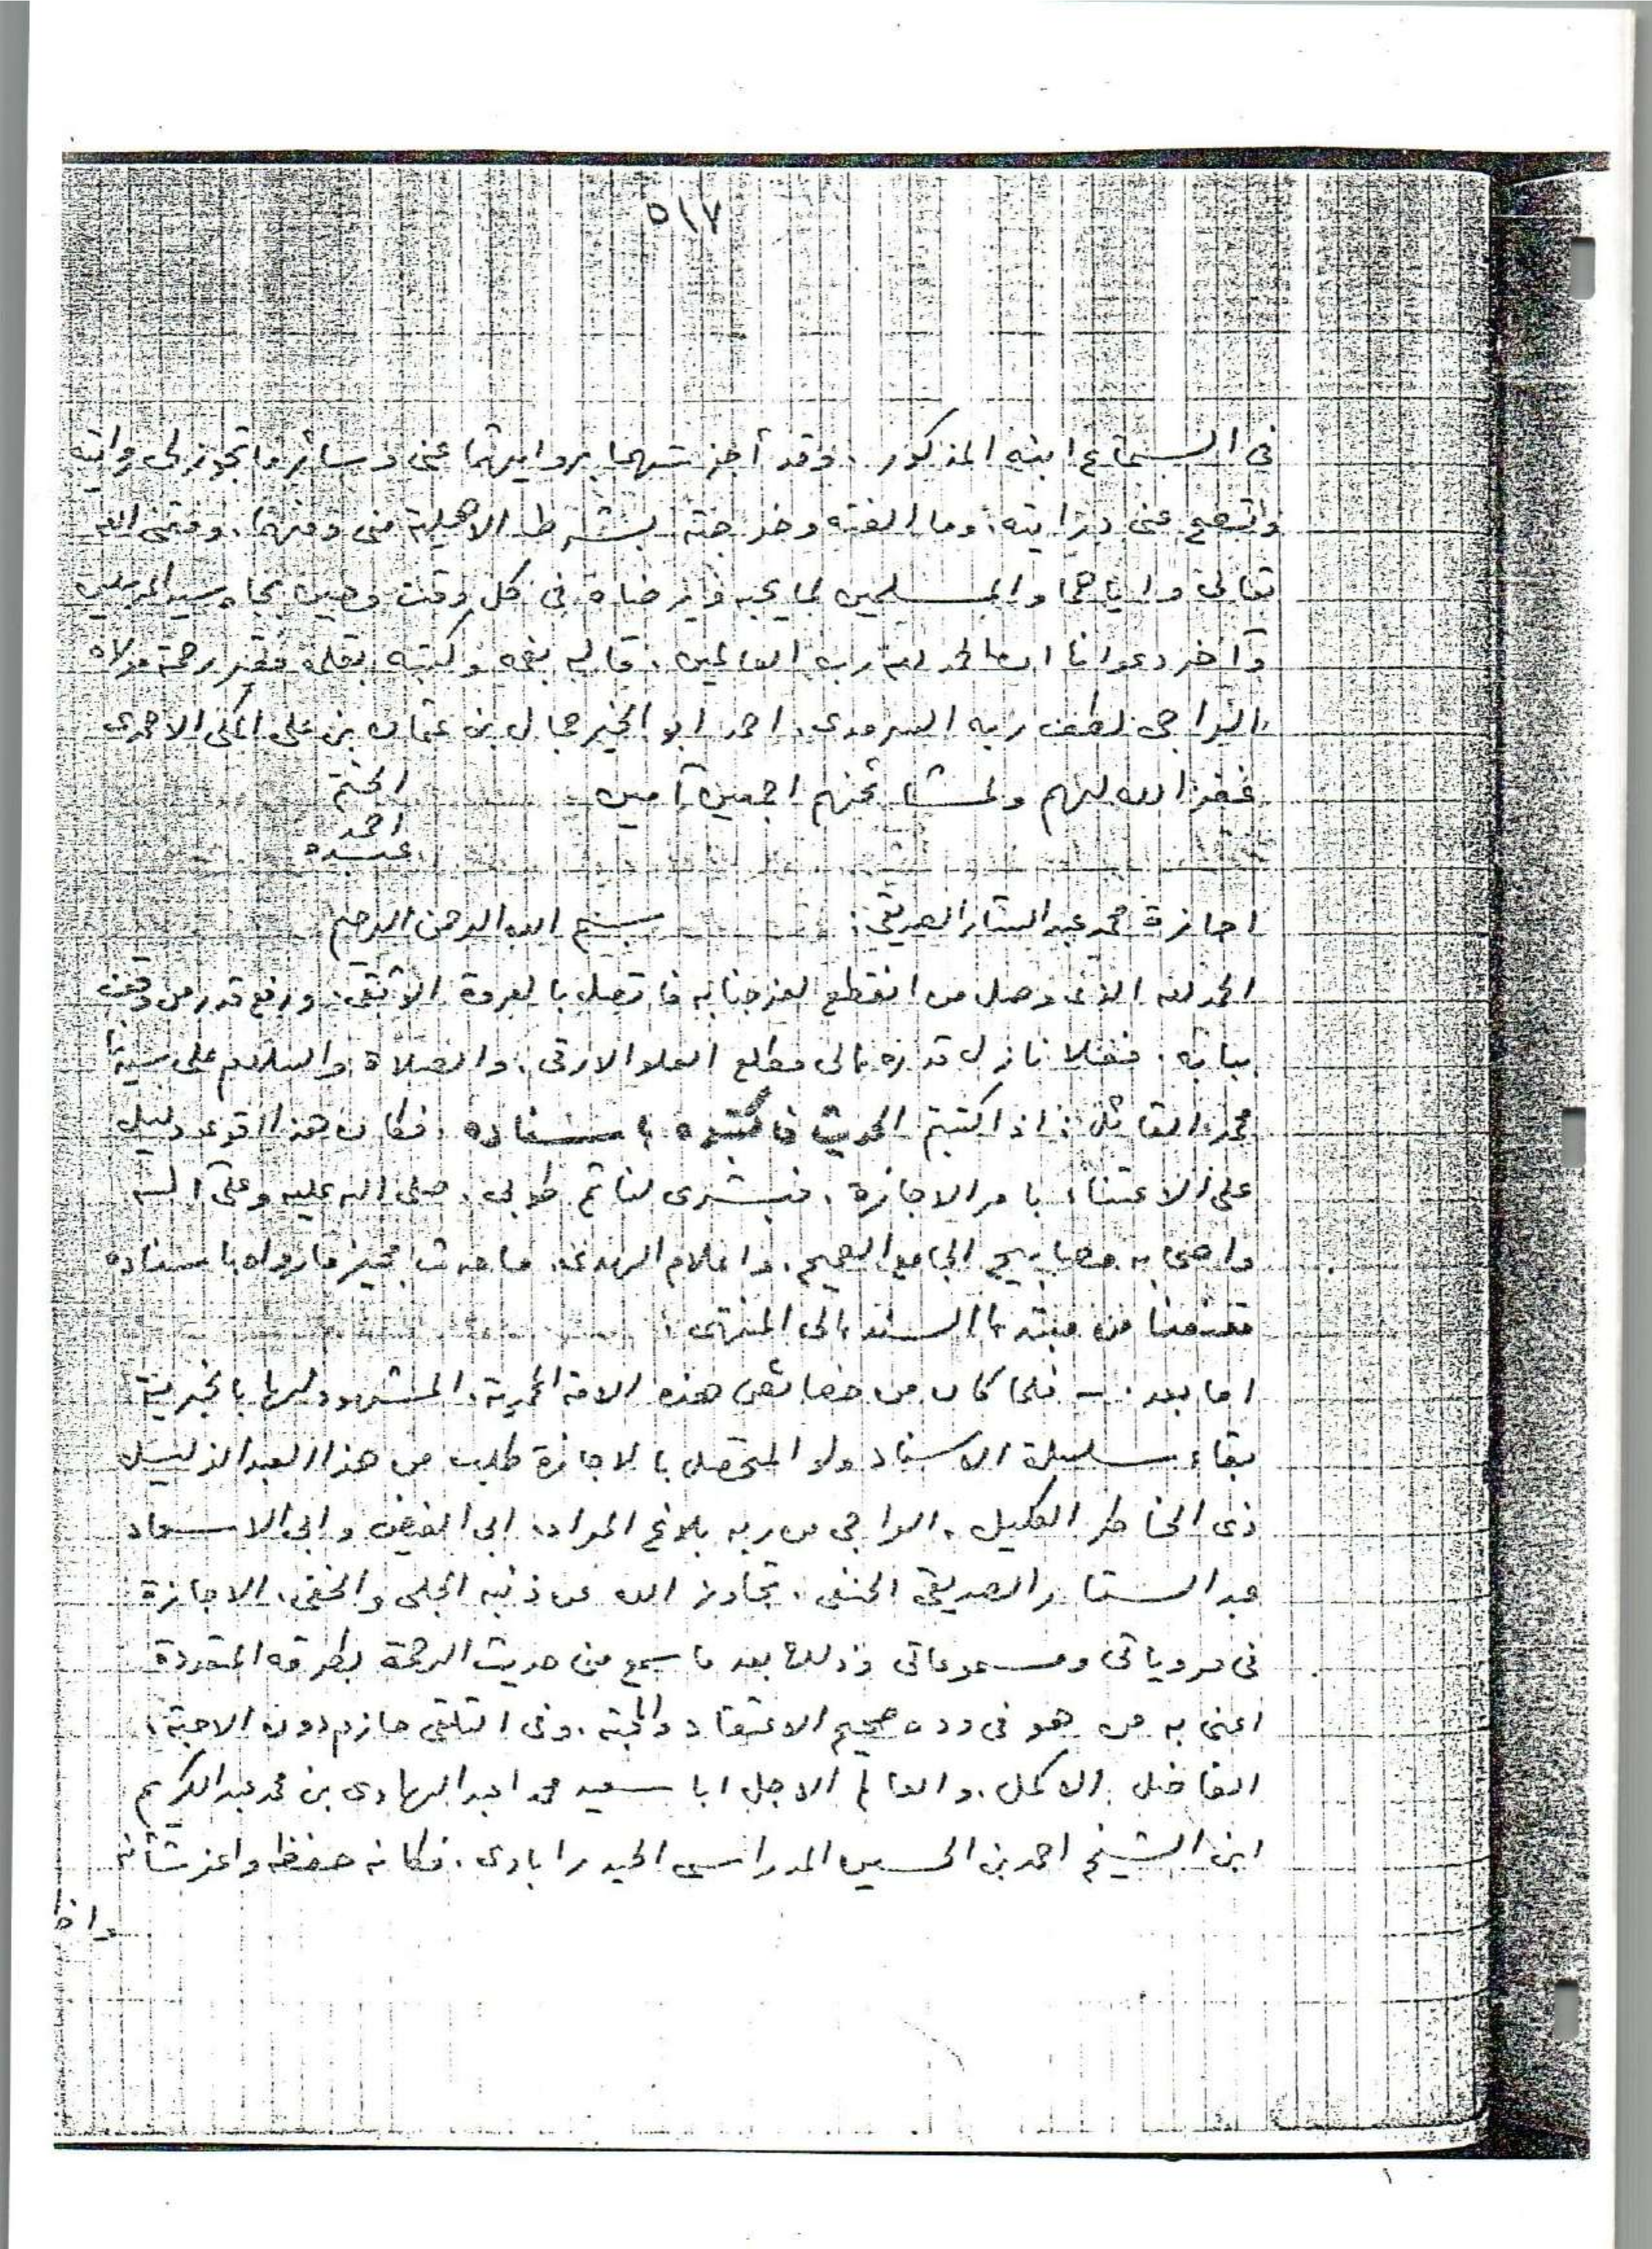 ٥١٧
فى السماع ابنه المذكور . وقد أجزتهما بروايتهما عنى وسائر ما تجوز لى روايته
وتصح عنى درايته . وما الفته وخرجته بشرط الاهلية منى ومنهما . وفقنى الله
تعالى واياهما والمسلمين لما يحبه ويرضاه فى كل وقت وحين بجاه سيد المرسلين
وآخر دعوانا ان الحمد لله رب العالمين . قاله بفمه وكتبه بقلمه فقير رحمة مولاه
الراجى لطف ربه السرمدى . احمد ابو الخير جمال بن عثمان بن على المكى الاحمدى
غفر الله لهم ولمشائخهم اجمعين آمين
الختم
احمد
عبده
اجازة محمد عبد الستار الصديقى : بسم الله الرحمن الرحيم
الحمد لله الذى وصل من انقطع لعز جنابه فاتصل بالعروة الوثقى . ورفع قدر من وقف
ببابه . فعلا نازل قدره الى مطلع العلو الارقى . والصلاة والسلام على سيدنا
محمد القائل : اذا كتبتم الحديث فاكتبوه باسناده . فكان هذا اقوى دليل
على الاعتناء بامر الاجازة . فبشرى لنا ثم طوبى . صلى الله عليه وعلى آله
واصحابه مصابيح الجامع الصحيح . واعلام الهدى . ما حدث مجيز ما رواه باسناده
مقتضبا من مبتدءا السند الى المنتهى :
اما بعد . - فلما كان من خصائص هذه الامة المحمدية . المشهود لها بالخيرية
بقاء سلسلة الاسناد ولو المتحصل بالاجازة طلب من هذا العبد الذليل
ذى الخاطر الكليل . الراجى من ربه بلاغ المراد . ابى الفيض وابى الاسعاد
عبد الستار الصديقى الحنفى . تجاوز الله عن ذنبه الجلى والخفى . الاجازة
فى مروياتى ومسموعاتى وذلك بعد ما سمع منى حديث الرحمة بطرقه المتعددة
اعنى به من هو فى وده صحيح الاعتقاد والمحبة . وفى التلقى حازم دون الاحبة .
الفاضل الاكمل . والعالم الاجل ابا سعيد محمد عبد الهادى بن محمد عبد الكريم
ابن الشيخ احمد بن الحسين المدراسى الحيدرابادى . فكانه حفظه واعز شأنه
واذا
١